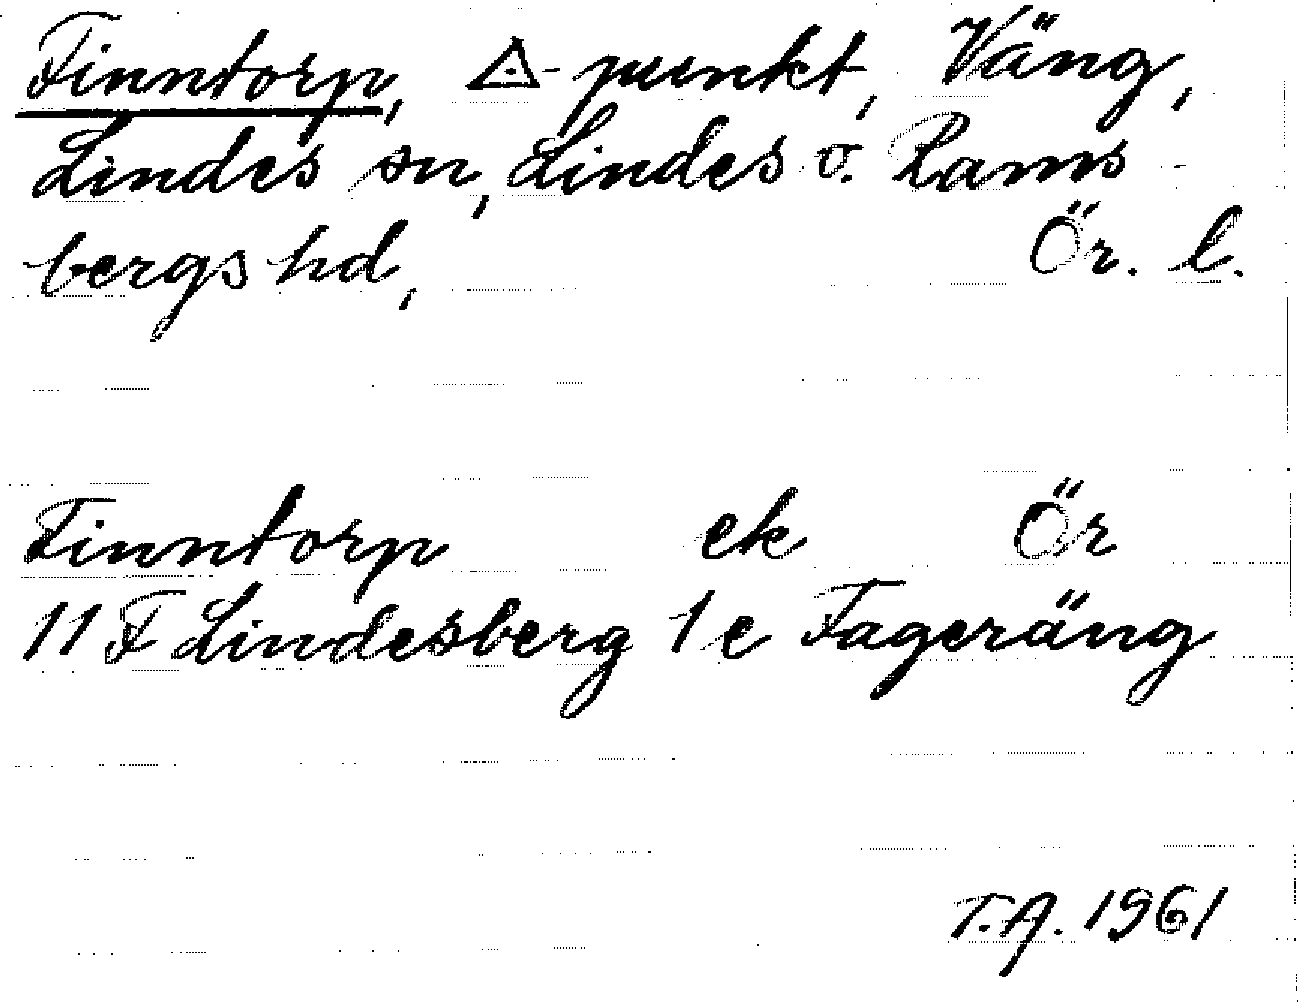 Finntorp, △-punkt, Väng,
Lindes sn, Lindes o. Rams-
bergs hd, Ör. l.
Finntorp ek Ör
11 F Lindesberg 1 e Fageräng
T.A. 1961